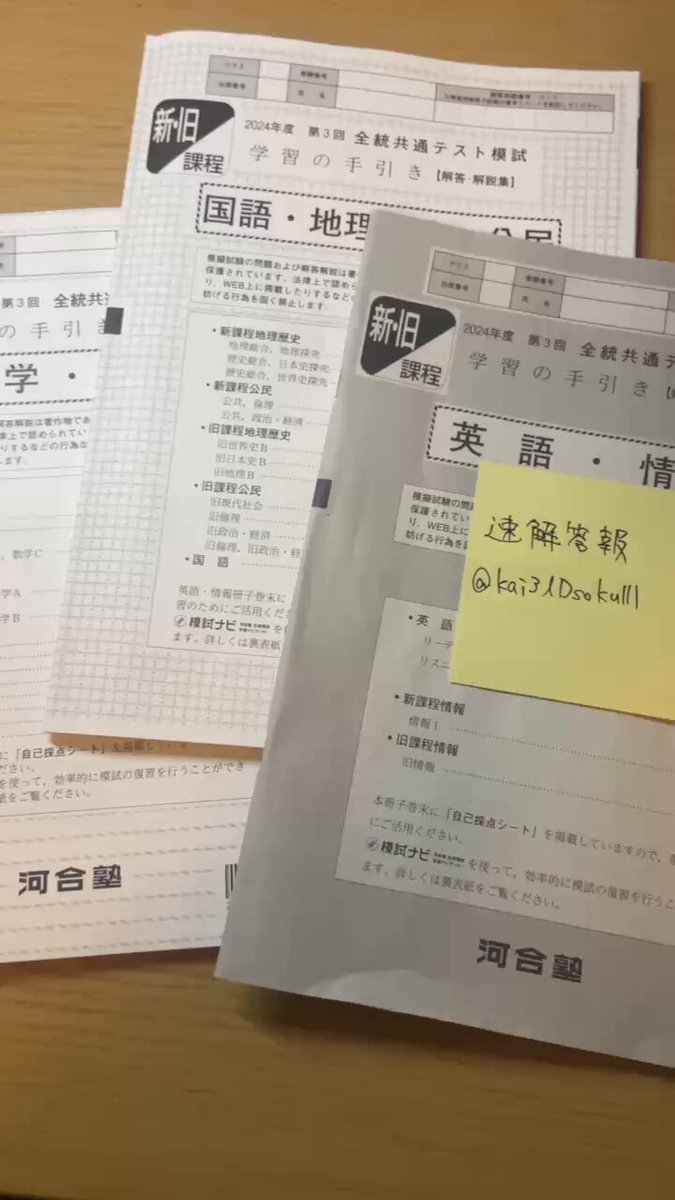 クラス
受験番号
出席番号
氏 名
新・旧
課程
2024年度 第3回 全統共通テスト模試
学習の手引き【解答・解説集】
国語・地理
公民
模擬試験の問題および解答解説は著
保護されています。法律上で認められ
り、WEB上に掲載したりするなどの
妨げる行為を固く禁止します
・新課程地理歴史
地理総合，地理探究
歴史総合，日本史探究
歴史総合，世界史探究
・新課程公民
公共，倫理
公共，政治・経済
・旧課程地理歴史
旧世界史B
旧日本史B
旧地理B
・旧課程公民
旧現代社会
旧倫理
旧政治・経済
旧倫理，旧政治・経
・国 語
英語・情報冊子巻末に
習のためにご活用くだ
模試ナビ
を使
ます。詳しくは裏表紙
第3回 全統共通
の手引き
学・
解答解説は著作物であ
律上で認められてい
りするなどの行為な
します。
，数学C
学A
学B
に「自己採点シート」を掲載している
ださい。
を使って，効率的に模試の復習を行うことができ
紙をご覧ください。
河合塾
クラス
受験番号
出席番号
氏 名
新・旧
課程
2024年度 第3回 全統共通テ
学習の手引き
英語・情
模擬試験の問
保護されてい
り、WEBに
妨げる行為を
速解答報
@kai3lDsokulll
・英 語
リーデ
リスニ
・新課程情報
情報Ⅰ
・旧課程情報
旧情報
本冊子巻末に「自己採点シート」を掲載していますので，
にご活用ください。
模試ナビ
を使って，効率的に模試の復習を行うこ
ます。詳しくは裏表紙をご覧ください。
河合塾